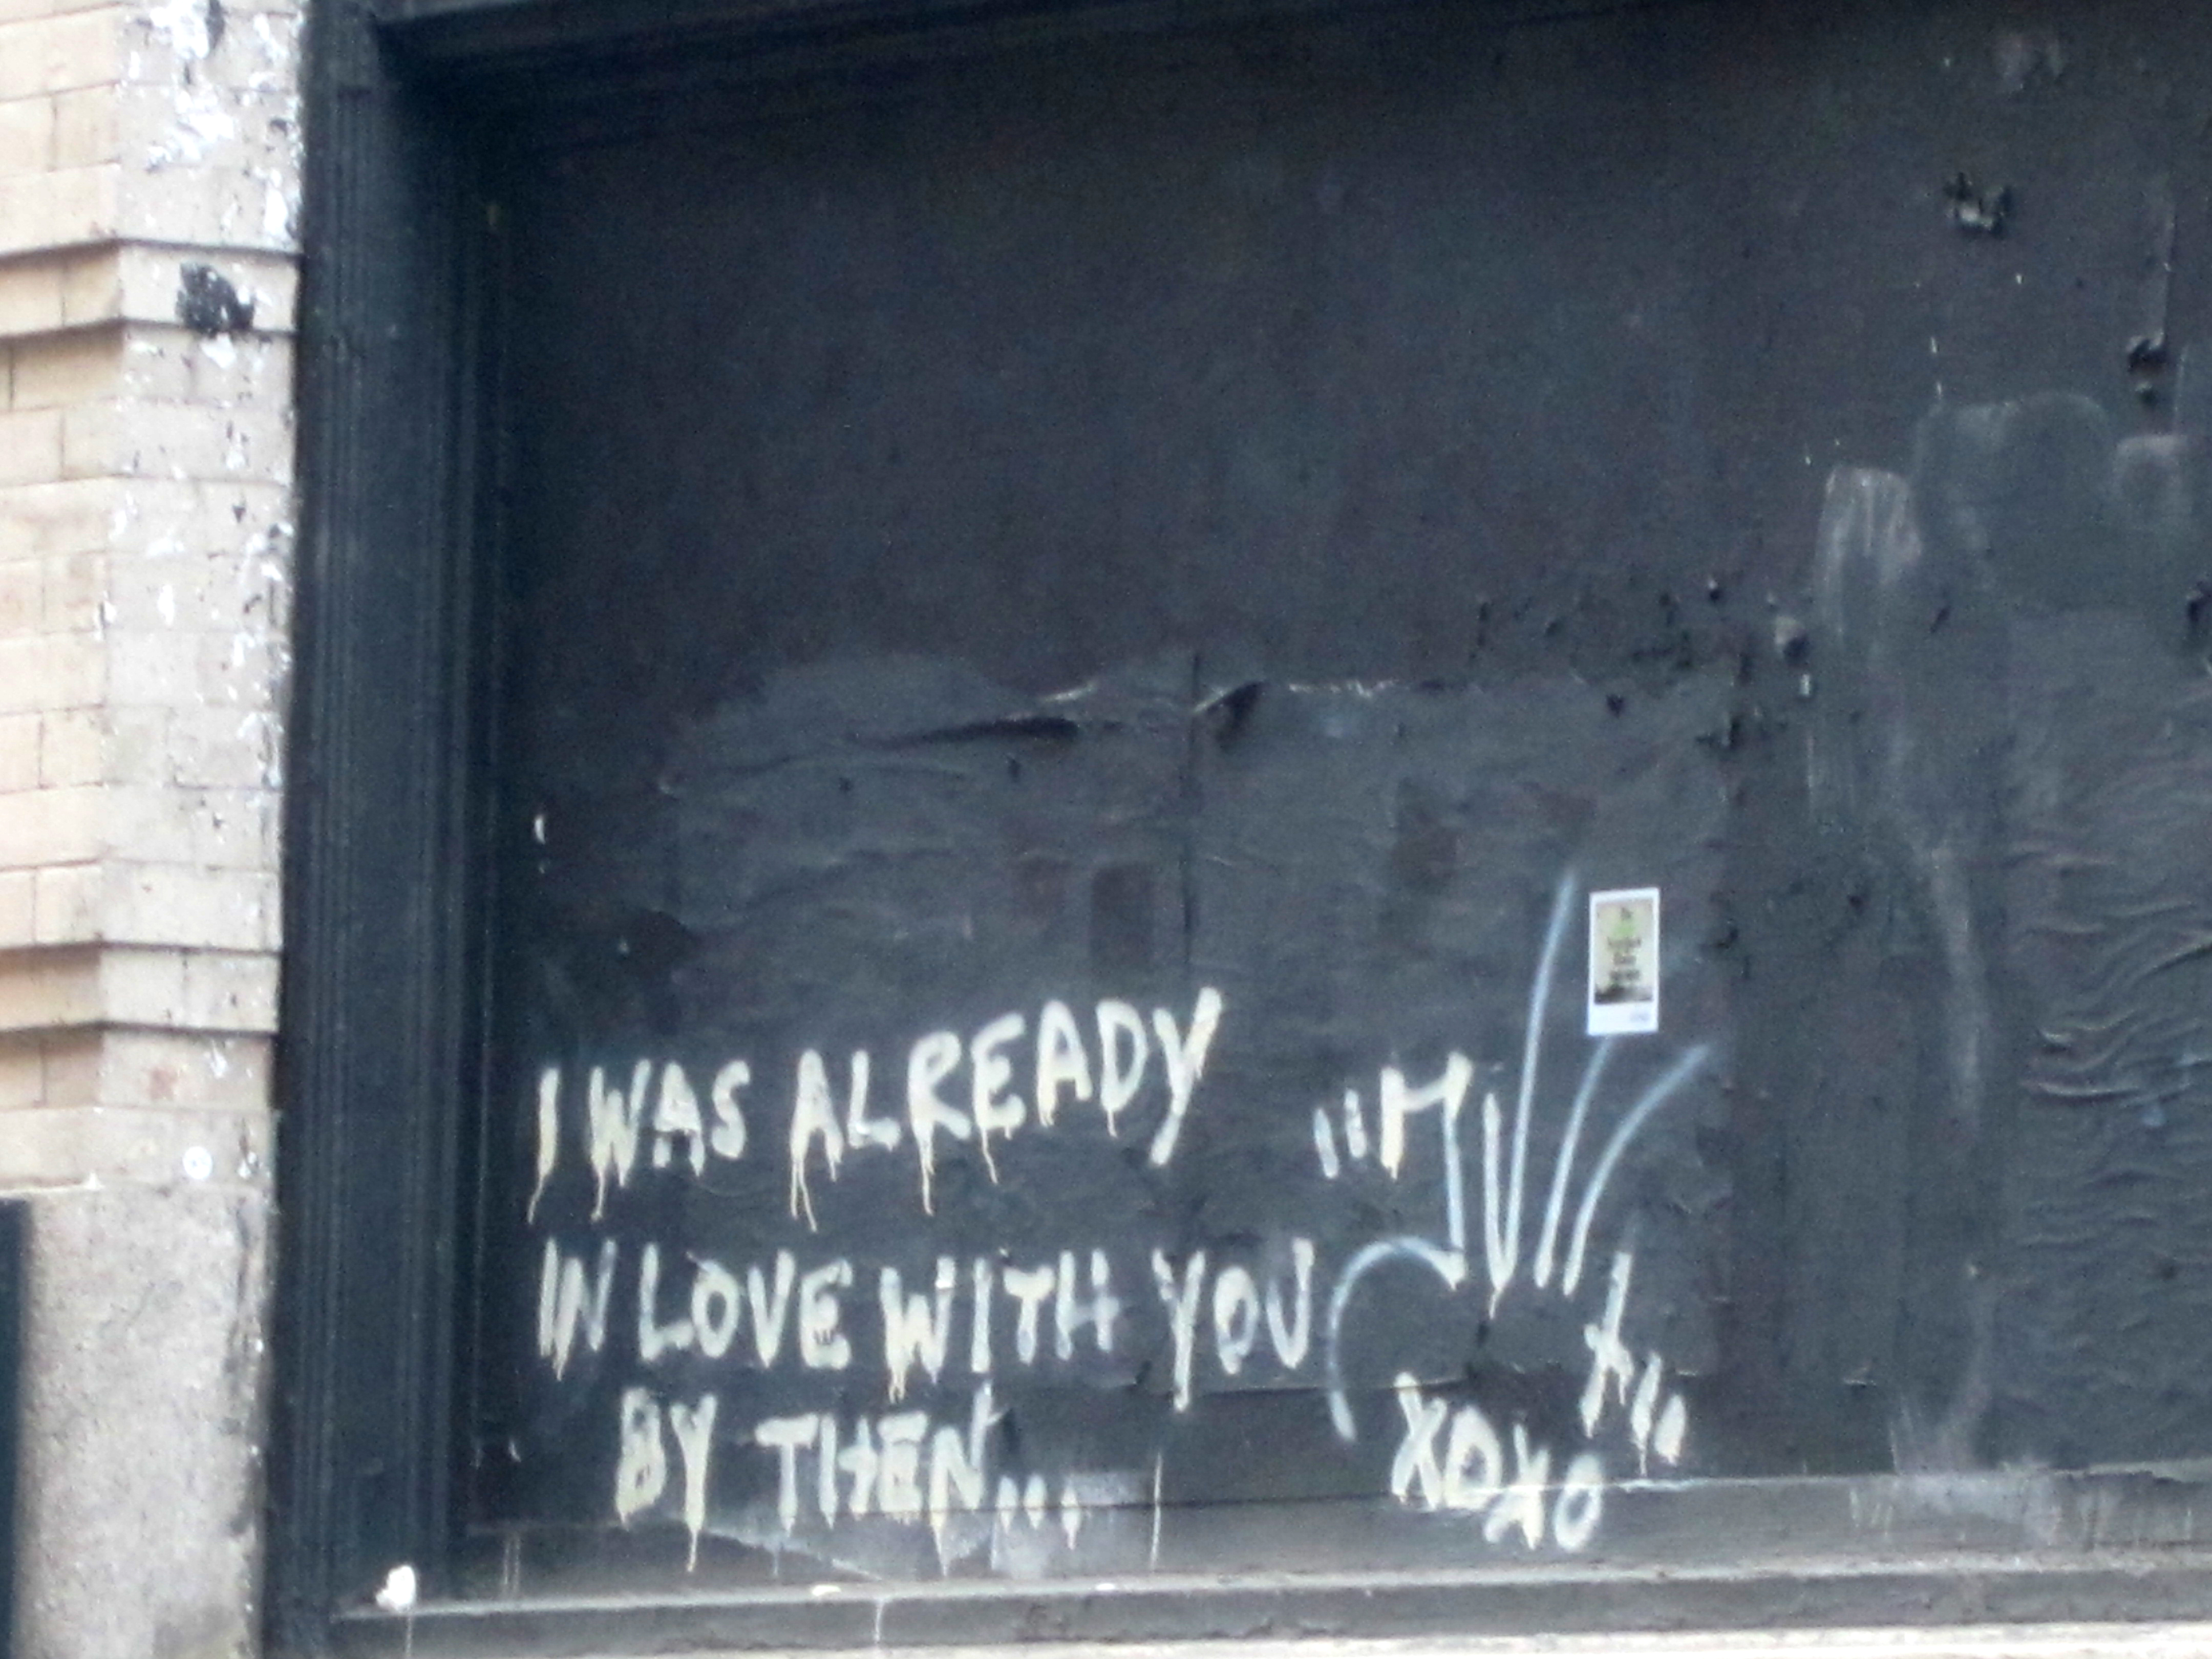 I WAS ALREADY
IN LOVE WITH YOU
BY THEN...
XOXO